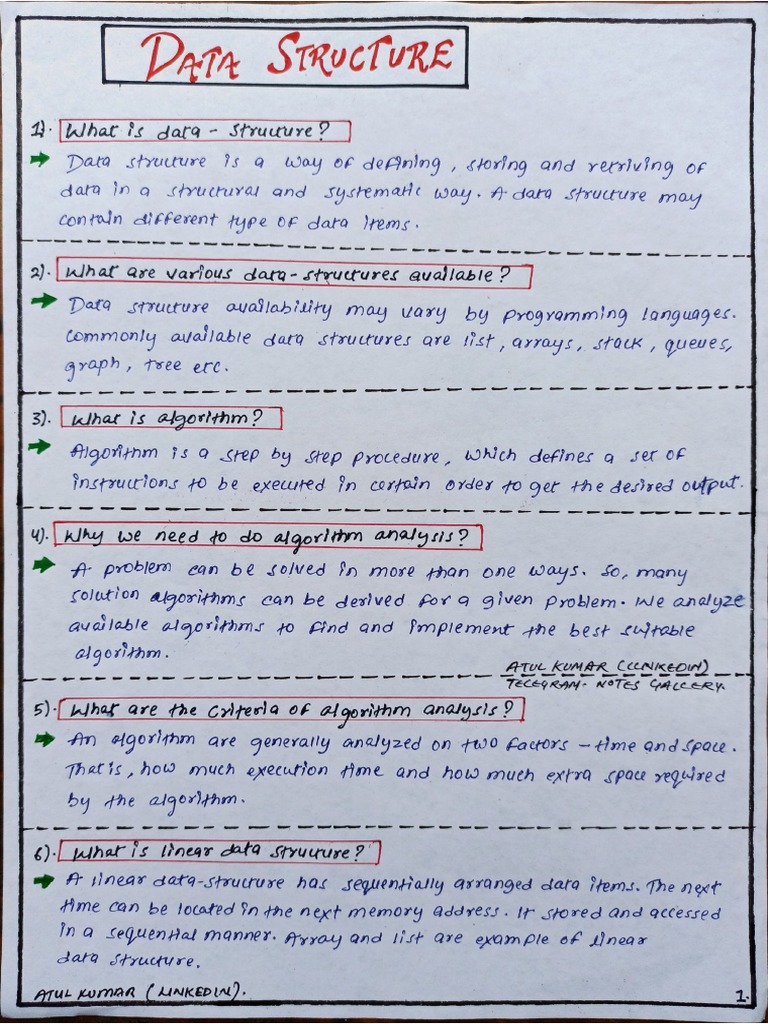 DATA STRUCTURE
1). What is data - structure?
Data structure is a way of defining, storing and retriving of
data in a structural and systematic way. A data structure may
contain different type of data items.
2). What are various data-structures available?
Data structure availability may vary by programming languages.
Commonly available data structures are list, arrays, stack, queues,
graph, tree etc.
3). What is algorithm?
Algorithm is a step by step procedure, which defines a set of
instructions to be executed in certain order to get the desired output.
4). Why we need to do algorithm analysis?
A problem can be solved in more than one ways. So, many
solution algorithms can be derived for a given problem. We analyze
available algorithms to find and implement the best suitable
algorithm.
ATUL KUMAR (LINKEDIN)
TELEGRAM- NOTES GALLERY.
5). What are the criteria of algorithm analysis?
An algorithm are generally analyzed on two factors - time and space.
That is, how much execution time and how much extra space required
by the algorithm.
6). What is linear data structure?
A linear data-structure has sequentially arranged data items. The next
time can be located in the next memory address. It stored and accessed
in a sequential manner. Array and list are example of linear
data structure.
ATUL KUMAR (LINKEDIN).
1.